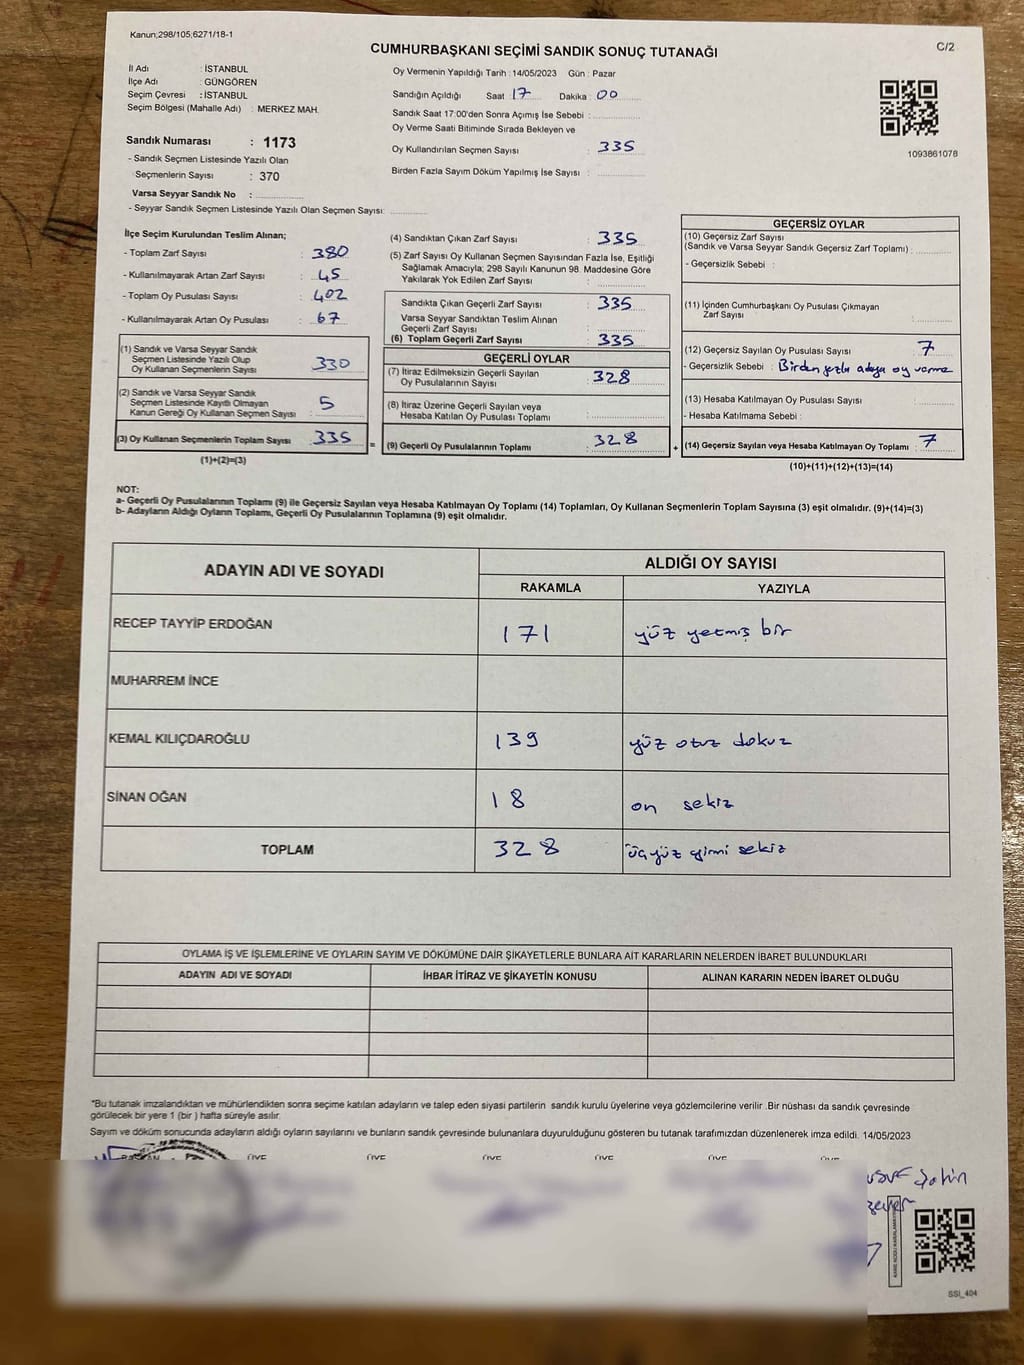 Kanun;298/105;6271/18-1
C/2
CUMHURBAŞKANI SEÇİMİ SANDIK SONUÇ TUTANAĞI
İl Adı : İSTANBUL
İlçe Adı : GÜNGÖREN
Seçim Çevresi : İSTANBUL
Seçim Bölgesi (Mahalle Adı) : MERKEZ MAH.
Sandık Numarası : 1173
- Sandık Seçmen Listesinde Yazılı Olan
Seçmenlerin Sayısı : 370
Varsa Seyyar Sandık No :
- Seyyar Sandık Seçmen Listesinde Yazılı Olan Seçmen Sayısı:
Oy Vermenin Yapıldığı Tarih : 14/05/2023 Gün : Pazar
Sandığın Açıldığı Saat 17 Dakika : 00
Sandık Saat 17:00'den Sonra Açımış İse Sebebi :
Oy Verme Saati Bitiminde Sırada Bekleyen ve
Oy Kullandırılan Seçmen Sayısı : 335
Birden Fazla Sayım Döküm Yapılmış İse Sayısı :
1093861078
İlçe Seçim Kurulundan Teslim Alınan;
- Toplam Zarf Sayısı : 380
- Kullanılmayarak Artan Zarf Sayısı : 45
- Toplam Oy Pusulası Sayısı : 402
- Kullanılmayarak Artan Oy Pusulası : 67
(1) Sandık ve Varsa Seyyar Sandık
Seçmen Listesinde Yazılı Olup
Oy Kullanan Seçmenlerin Sayısı : 330
(2) Sandık ve Varsa Seyyar Sandık
Seçmen Listesinde Kayıtlı Olmayan
Kanun Gereği Oy Kullanan Seçmen Sayısı : 5
(3) Oy Kullanan Seçmenlerin Toplam Sayısı : 335
(1)+(2)=(3)
(4) Sandıktan Çıkan Zarf Sayısı : 335
(5) Zarf Sayısı Oy Kullanan Seçmen Sayısından Fazla İse, Eşitliği
Sağlamak Amacıyla; 298 Sayılı Kanunun 98. Maddesine Göre
Yakılarak Yok Edilen Zarf Sayısı :
Sandıkta Çıkan Geçerli Zarf Sayısı : 335
Varsa Seyyar Sandıktan Teslim Alınan
Geçerli Zarf Sayısı :
(6) Toplam Geçerli Zarf Sayısı : 335
GEÇERLİ OYLAR
(7) İtiraz Edilmeksizin Geçerli Sayılan
Oy Pusulalarının Sayısı : 328
(8) İtiraz Üzerine Geçerli Sayılan veya
Hesaba Katılan Oy Pusulası Toplamı :
= (9) Geçerli Oy Pusulalarının Toplamı : 328
GEÇERSİZ OYLAR
(10) Geçersiz Zarf Sayısı
(Sandık ve Varsa Seyyar Sandık Geçersiz Zarf Toplamı) :
- Geçersizlik Sebebi :
(11) İçinden Cumhurbaşkanı Oy Pusulası Çıkmayan
Zarf Sayısı :
(12) Geçersiz Sayılan Oy Pusulası Sayısı : 7
- Geçersizlik Sebebi : Birden fazla adaya oy verme
(13) Hesaba Katılmayan Oy Pusulası Sayısı :
- Hesaba Katılmama Sebebi :
+ (14) Geçersiz Sayılan veya Hesaba Katılmayan Oy Toplamı : 7
(10)+(11)+(12)+(13)=(14)
NOT:
a- Geçerli Oy Pusulalarının Toplamı (9) ile Geçersiz Sayılan veya Hesaba Katılmayan Oy Toplamı (14) Toplamları, Oy Kullanan Seçmenlerin Toplam Sayısına (3) eşit olmalıdır. (9)+(14)=(3)
b- Adayların Aldığı Oyların Toplamı, Geçerli Oy Pusulalarının Toplamına (9) eşit olmalıdır.
ADAYIN ADI VE SOYADI ALDIĞI OY SAYISI
RAKAMLA YAZIYLA
RECEP TAYYİP ERDOĞAN 171 yüz yetmiş bir
MUHARREM İNCE
KEMAL KILIÇDAROĞLU 139 yüz otuz dokuz
SİNAN OĞAN 18 on sekiz
TOPLAM 328 üçyüz yirmi sekiz
OYLAMA İŞ VE İŞLEMLERİNE VE OYLARIN SAYIM VE DÖKÜMÜNE DAİR ŞİKAYETLERLE BUNLARA AİT KARARLARIN NELERDEN İBARET BULUNDUKLARI
ADAYIN ADI VE SOYADI İHBAR İTİRAZ VE ŞİKAYETİN KONUSU ALINAN KARARIN NEDEN İBARET OLDUĞU
*Bu tutanak imzalandıktan ve mühürlendikten sonra seçime katılan adayların ve talep eden siyasi partilerin sandık kurulu üyelerine veya gözlemcilerine verilir .Bir nüshası da sandık çevresinde
görülecek bir yere 1 (bir ) hafta süreyle asılır.
Sayım ve döküm sonucunda adayların aldığı oyların sayılarını ve bunların sandık çevresinde bulunanlara duyurulduğunu gösteren bu tutanak tarafımızdan düzenlenerek imza edildi. 14/05/2023
BAŞKAN ÜYE ÜYE ÜYE ÜYE ÜYE ÜYE
Şahin
SSI_404